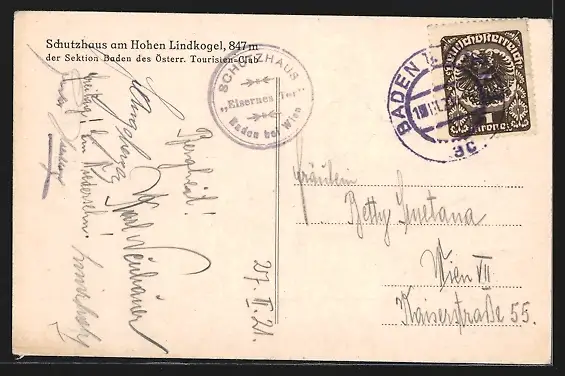 Schutzhaus am Hohen Lindkogel, 847 m
der Sektion Baden des Österr. Touristen-Club
SCHUTZHAUS
„Eisernes Tor“
Baden bei Wien
BADEN
3c
Deutschösterreich
1
Krone
Bergheil!
Karl Neuhauer
Freitag! Am Wiedersehn!
27. II. 21.
Fräulein
Betty Smetana
Wien VII
Kaiserstraße 55.